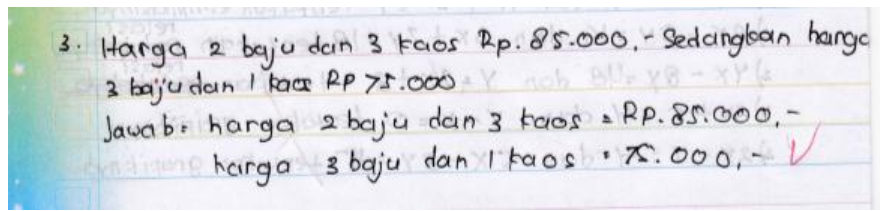 3. Harga 2 baju dan 3 kaos Rp. 85.000,- Sedangkan harga
3 baju dan 1 kaos RP 75.000
Jawab: harga 2 baju dan 3 kaos = RP. 85.000,-
harga 3 baju dan 1 kaos = 75.000,-